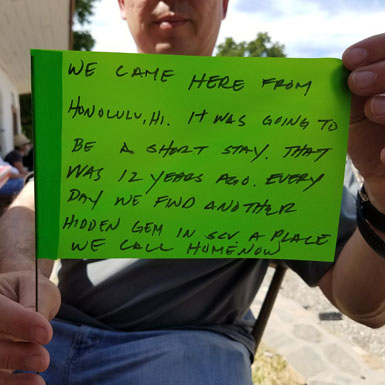 WE CAME HERE FROM
HONOLULU, HI. IT WAS GOING TO
BE A SHORT STAY. THAT
WAS 12 YEARS AGO. EVERY
DAY WE FIND ANOTHER
HIDDEN GEM IN SCV. A PLACE
WE CALL HOME NOW